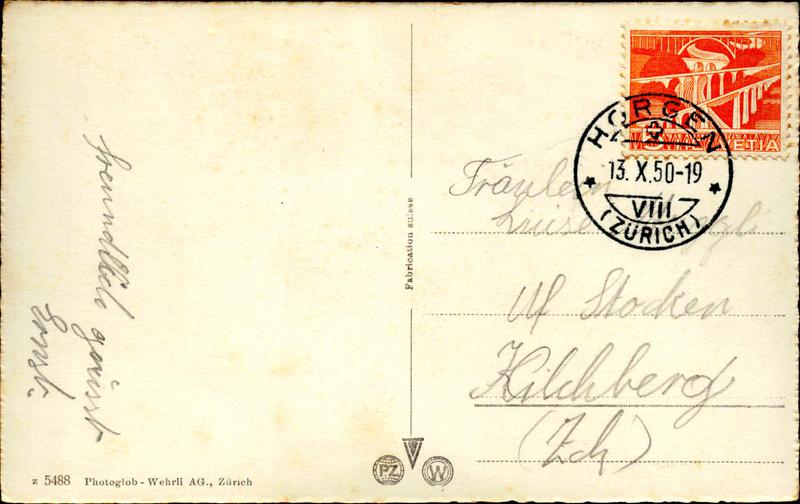 Freundlich grüsst
Ernst.
HELVETIA
5
HORGEN
13. X.50-19
VIII
(ZÜRICH)
Fräulein
Luise
Uf Stocken
Kilchberg
(Zch)
Fabrication suisse
PZ
W
z 5488 Photoglob - Wehrli AG., Zürich